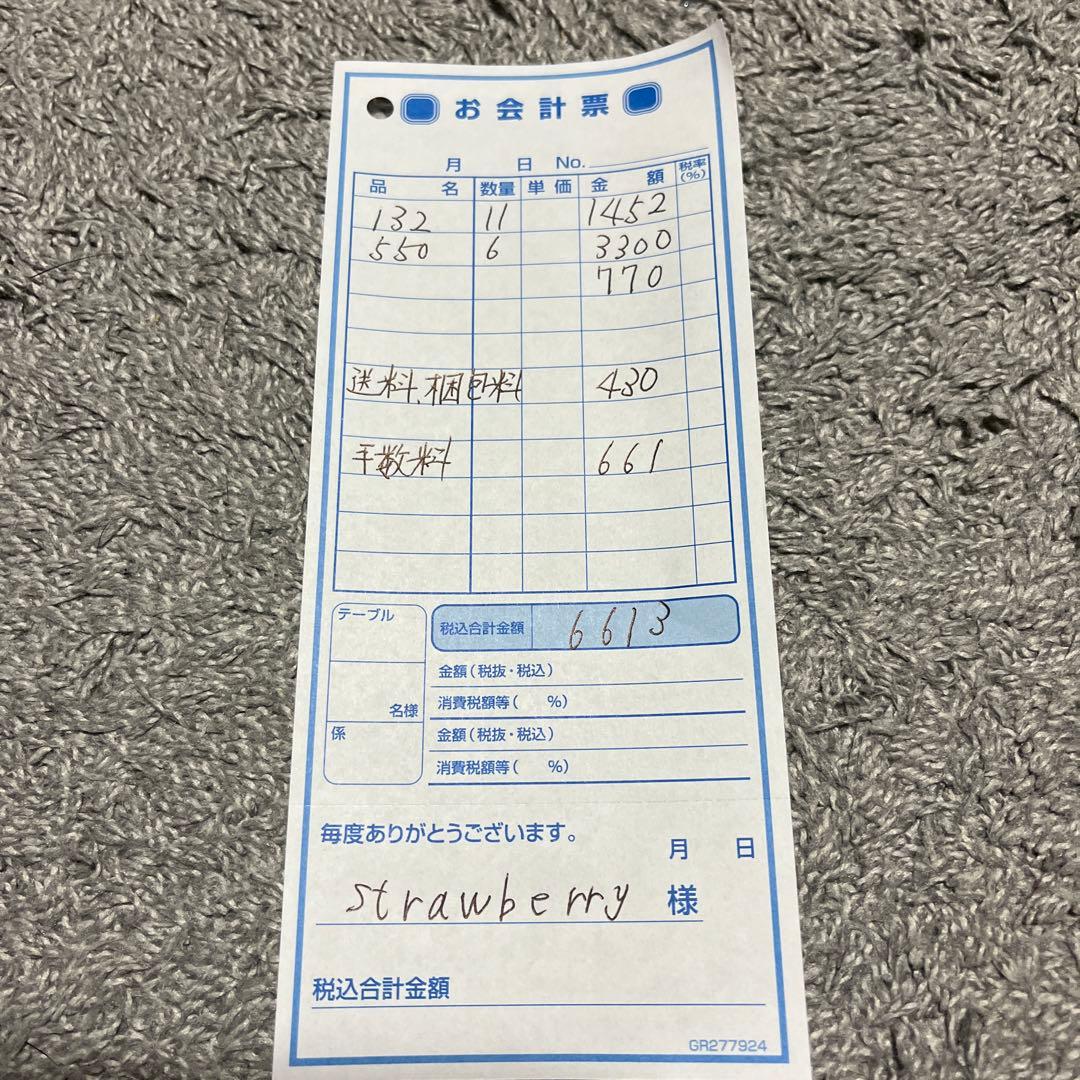 お会計票
月 日 No.
品 名 数量 単価 金 額 税率(%)
132 11 1452
550 6 3300
770
送料、梱包料 430
手数料 661
テーブル
税込合計金額 6613
金額(税抜・税込)
名様 消費税額等( %)
係 金額(税抜・税込)
消費税額等( %)
毎度ありがとうございます。
月 日
strawberry 様
税込合計金額
GR277924